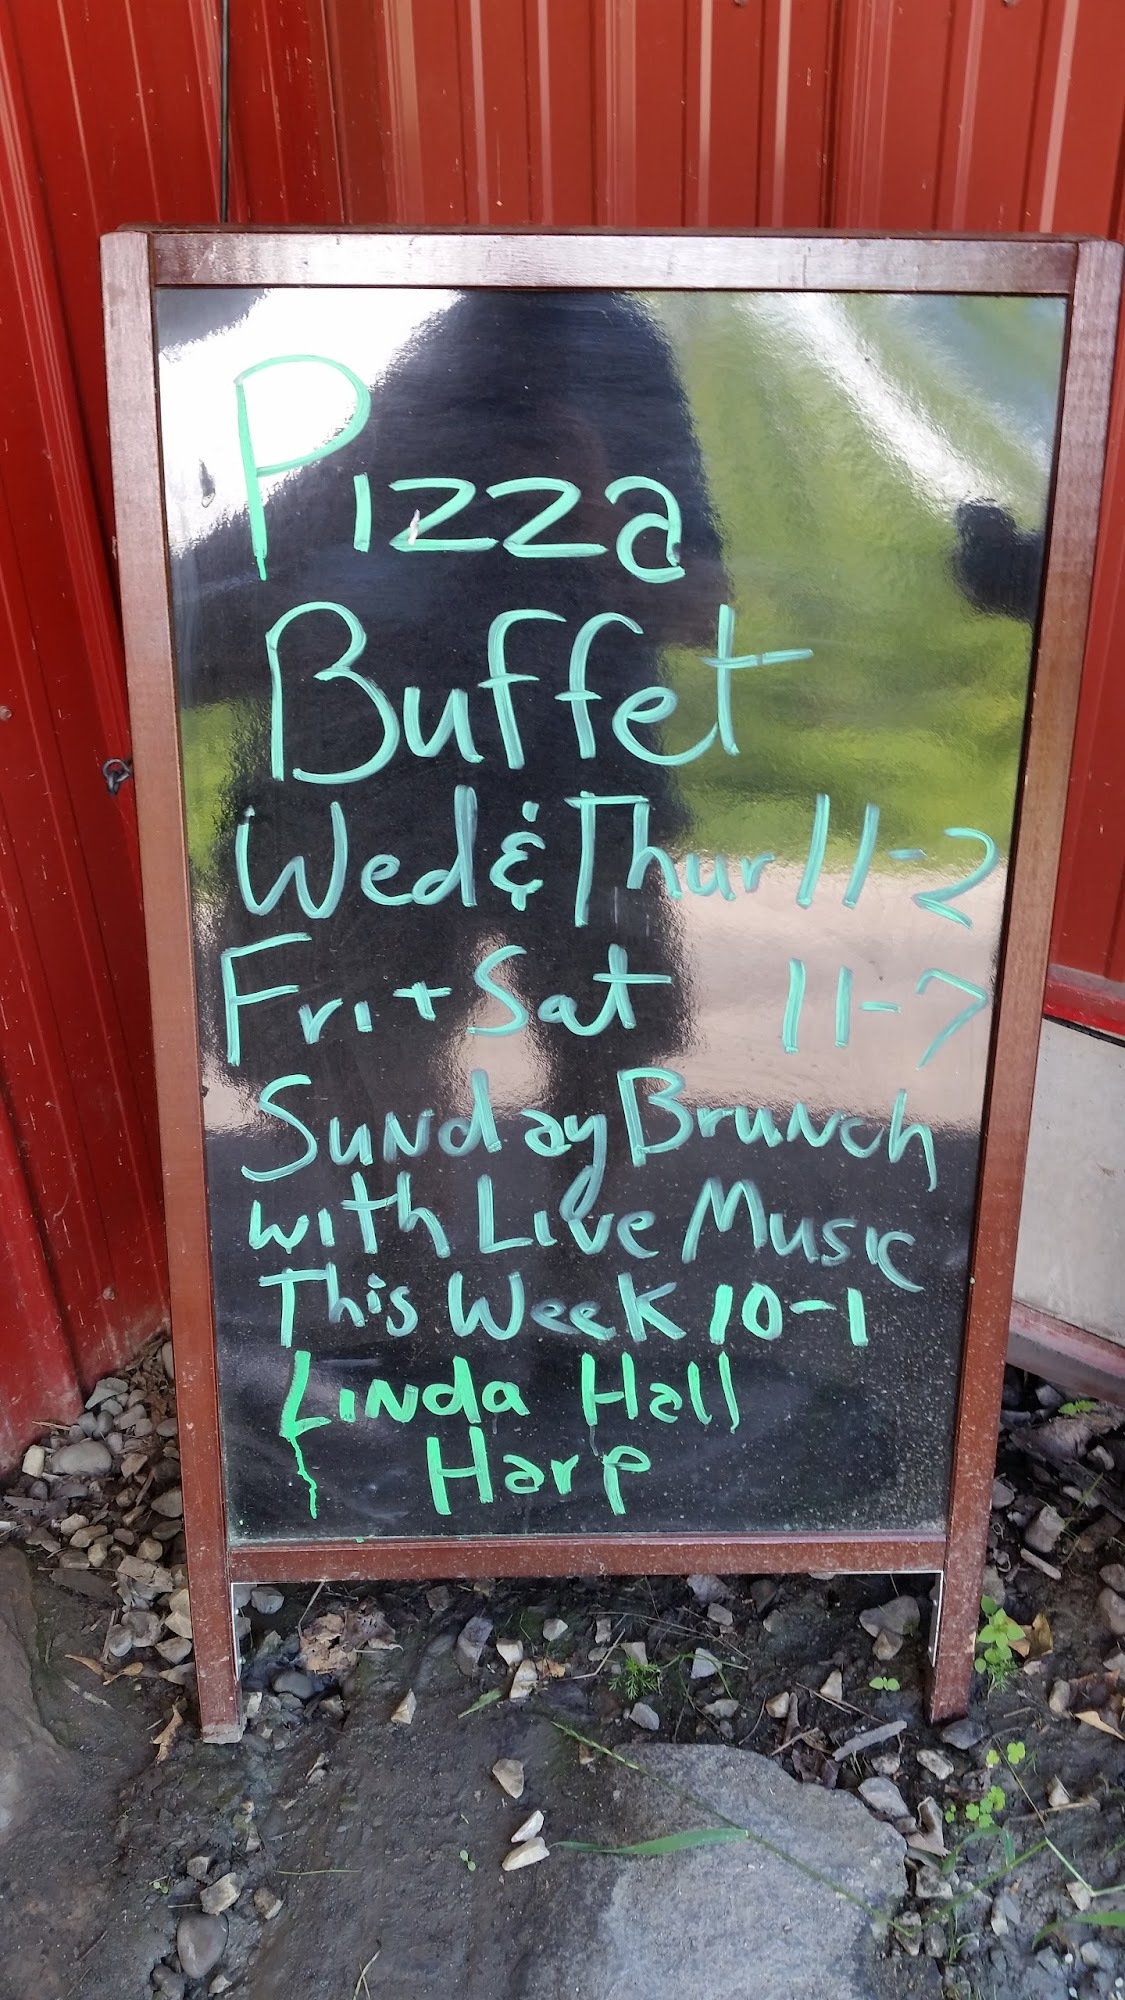 Pizza
Buffet
Wed & Thur 11-2
Fri + Sat 11-7
Sunday Brunch
with Live Music
This Week 10-1
Linda Hall
Harp